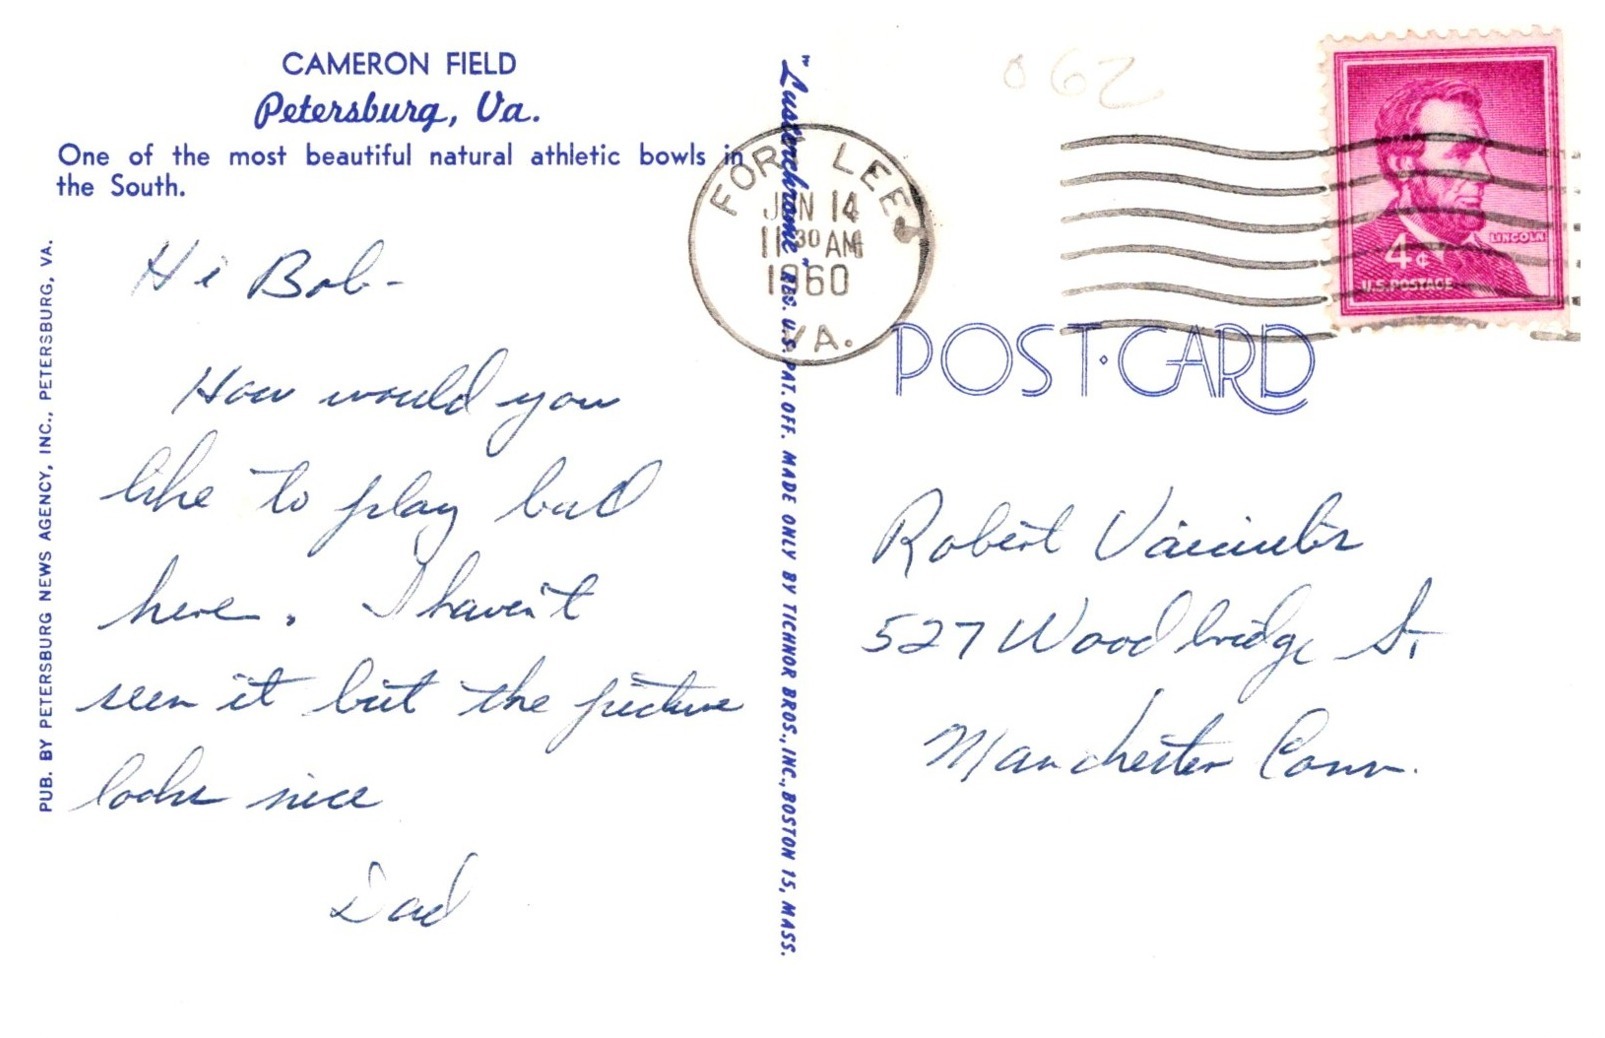 CAMERON FIELD
Petersburg, Va.
One of the most beautiful natural athletic bowls in
the South.
PUB. BY PETERSBURG NEWS AGENCY, INC., PETERSBURG, VA.
Hi Bob-
How would you
like to play ball
here. I haven't
seen it but the picture
looks nice
Dad
"Lusterchrome" REG. U.S. PAT. OFF. MADE ONLY BY TICHNOR BROS., INC., BOSTON 15, MASS.
062
FORT LEE
JUN 14
11 30 AM
1960
VA.
LINCOLN
4¢
U.S. POSTAGE
POST CARD
Robert
527 Woodbridge St.
Manchester Conn.